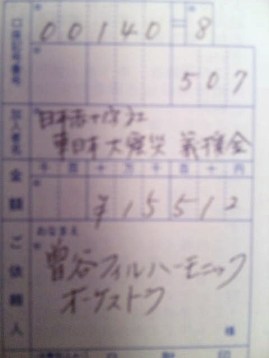 口座記号番号
00140=8
507
加入者名
日本赤十字社
東日本大震災 義援金
金額
千 百 十 万 千 百 十 円
¥15512
ご依頼人
おなまえ
曽谷フィルハーモニック
オーケストラ
様